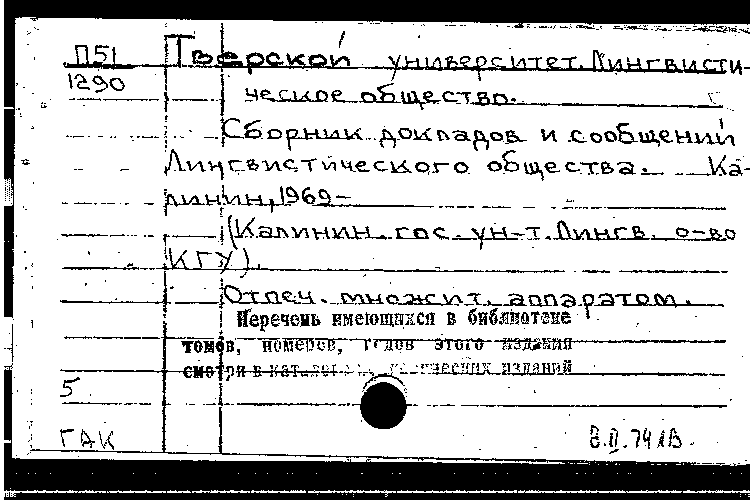 П51 Тверской университет. Лингвисти-
1290 ческое общество.
Сборник докладов и сообщений
Лингвистического общества. Ка-
линин, 1969-
(Калинин. гос. ун-т. Лингв. о-во
КГУ).
Отпеч. множит. аппаратом.
Перечень имеющихся в библиотеке
томов, номеров, годов этого издания
смотри в изданий
5
ГАК